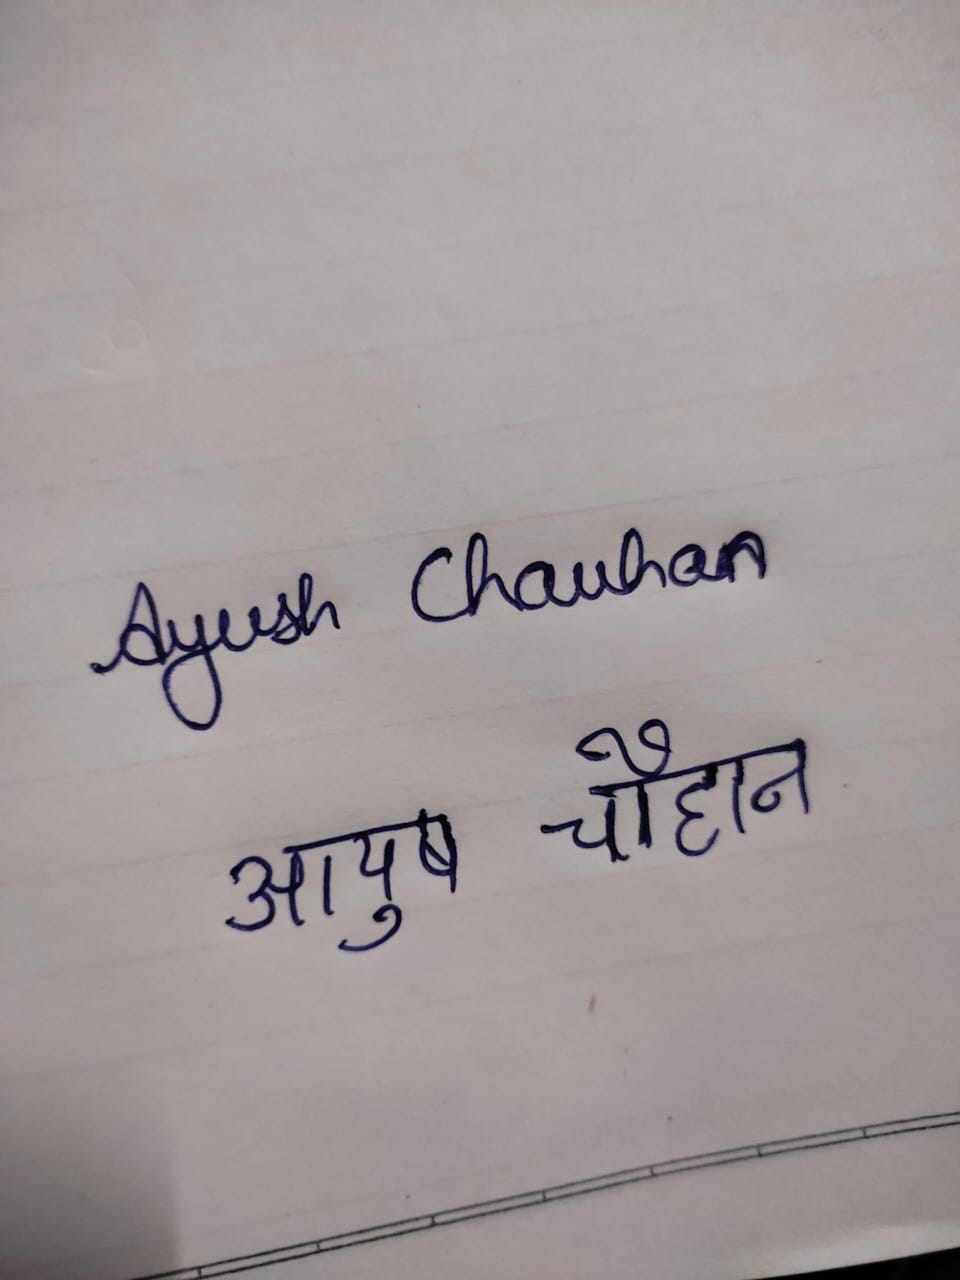 Ayush Chauhan
आयुष चौहान